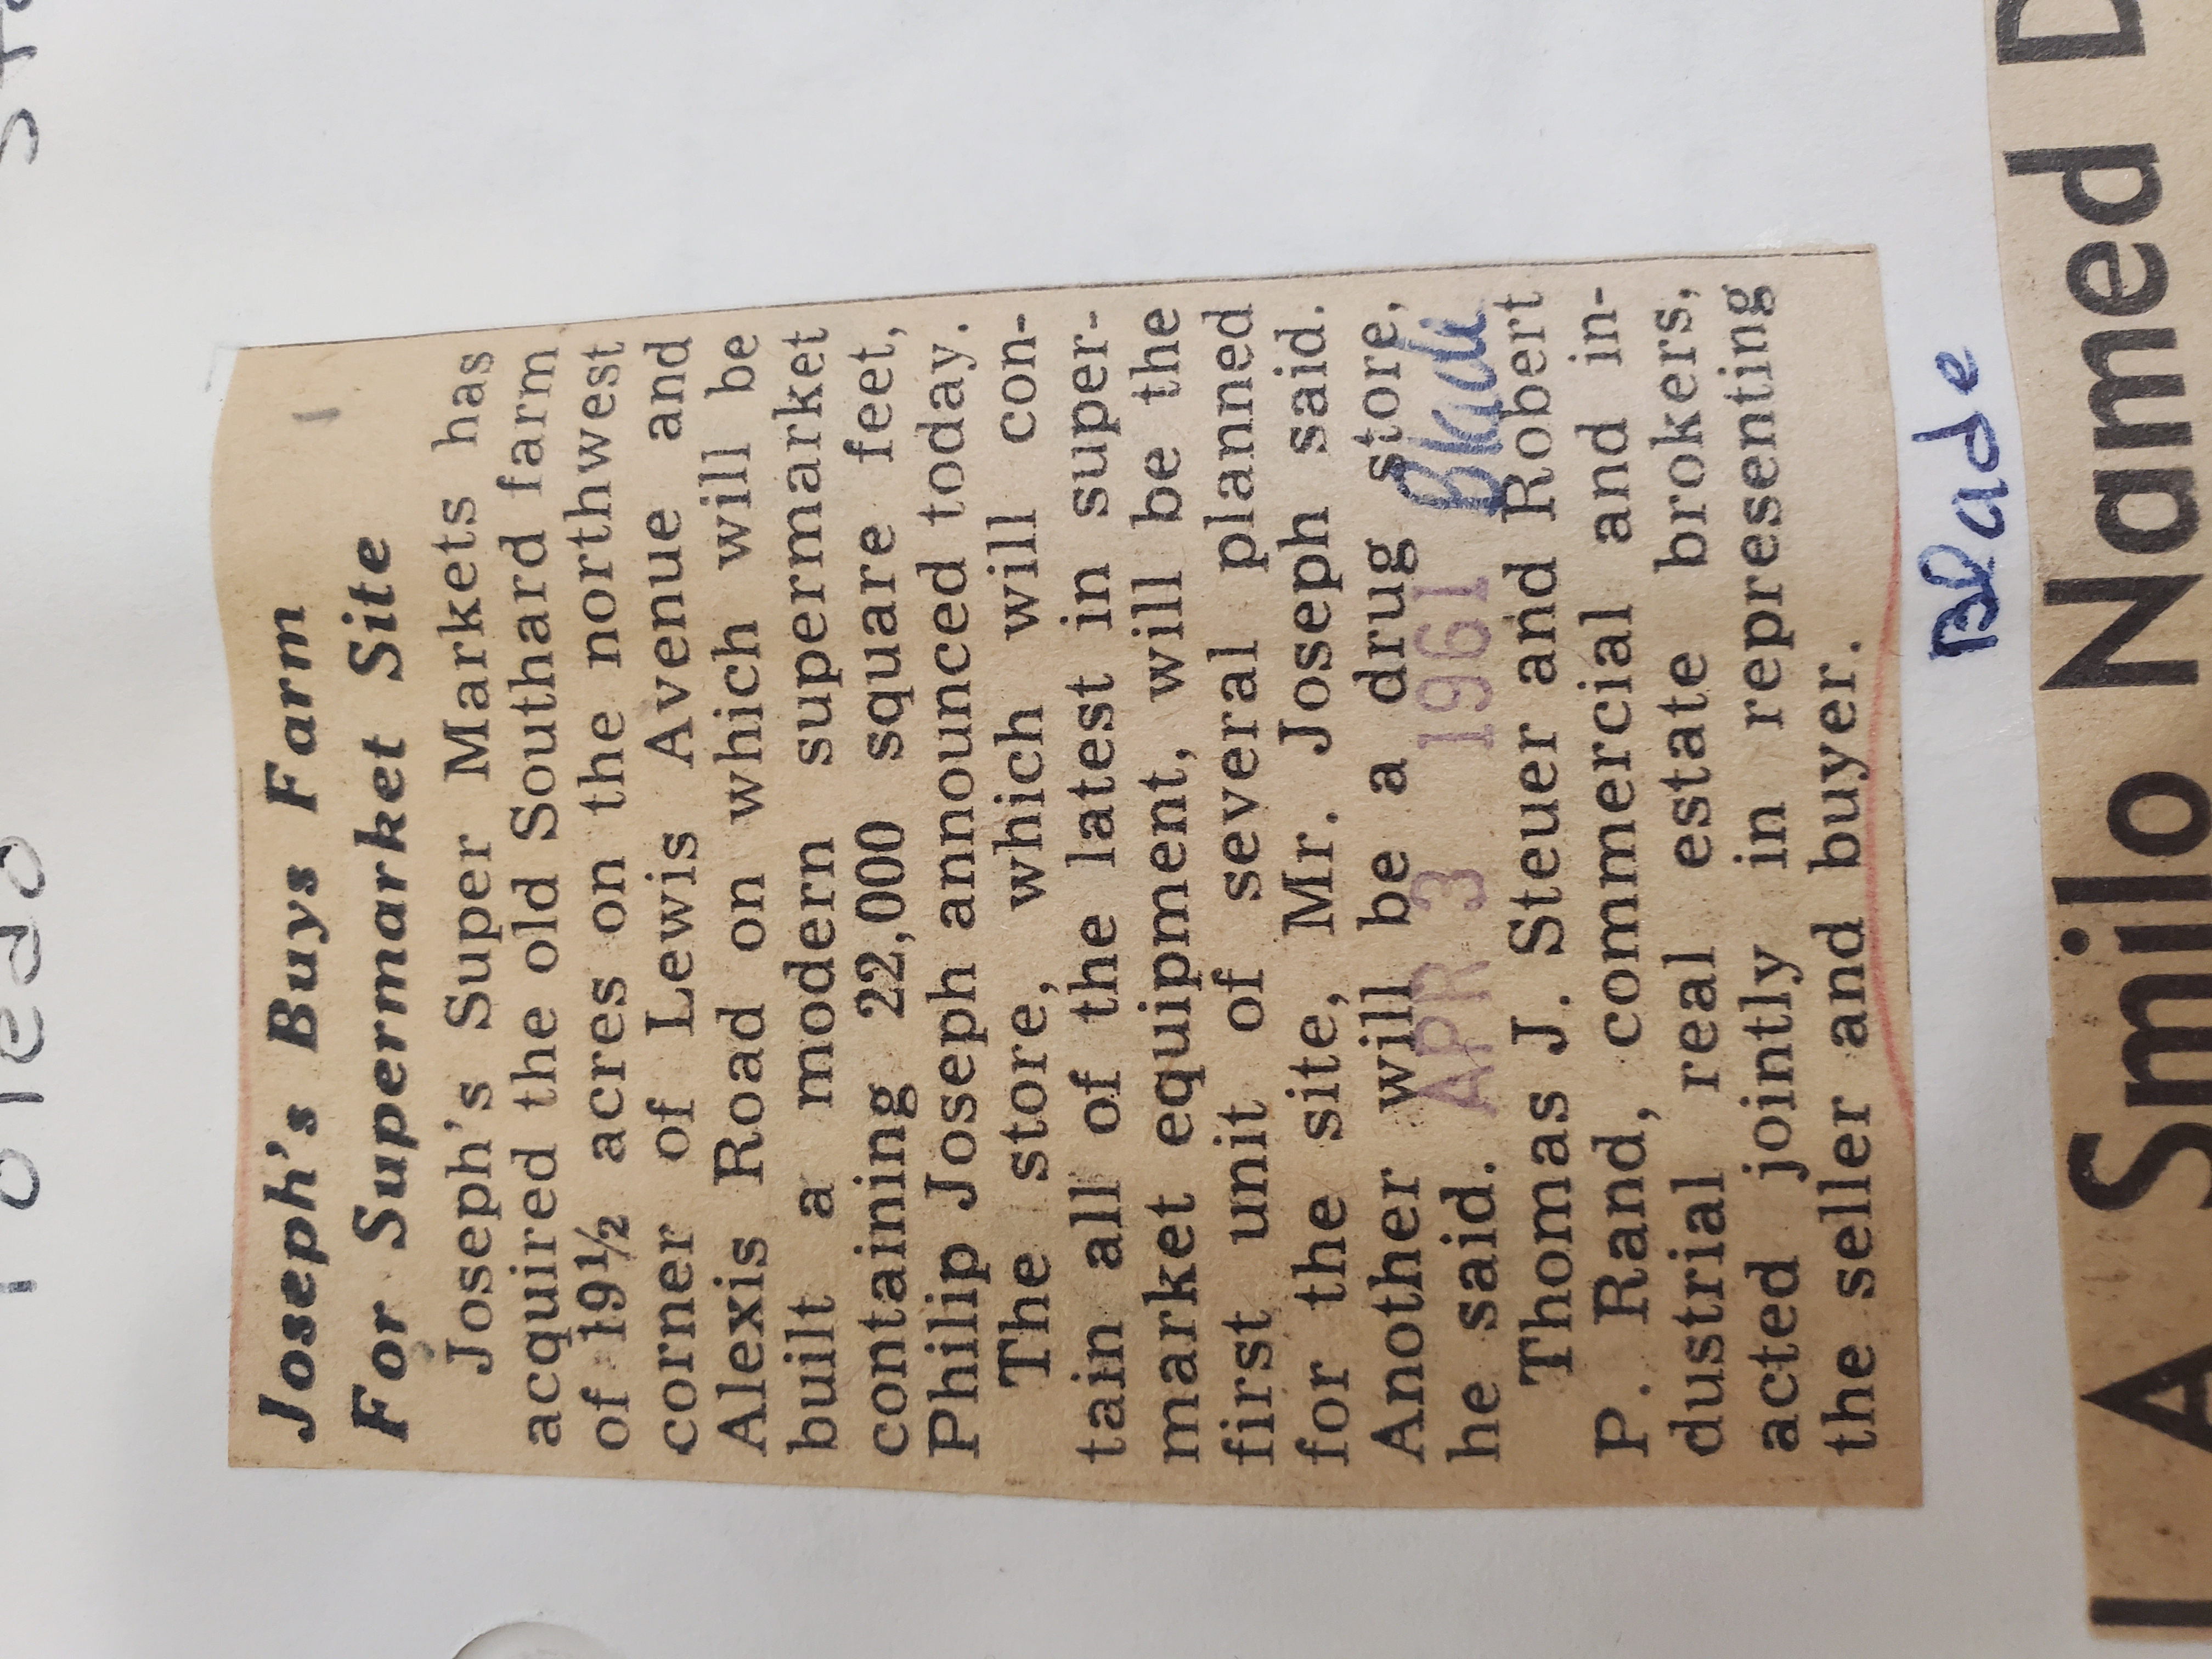 Toledo
Joseph's Buys Farm
For Supermarket Site
Joseph's Super Markets has
acquired the old Southard farm
of 19½ acres on the northwest
corner of Lewis Avenue and
Alexis Road on which will be
built a modern supermarket
containing 22,000 square feet,
Philip Joseph announced today.
The store, which will con-
tain all of the latest in super-
market equipment, will be the
first unit of several planned
for the site, Mr. Joseph said.
Another will be a drug store,
he said.
APR 3 1961 Blade
Thomas J. Steuer and Robert
P. Rand, commercial and in-
dustrial real estate brokers,
acted jointly in representing
the seller and buyer.
Blade
A Smilo Named D